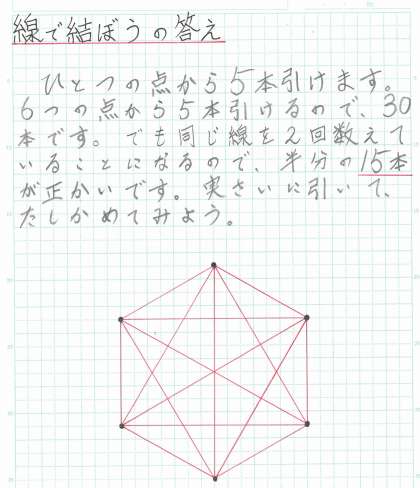 線で結ぼうの答え
ひとつの点から5本引けます。
6つの点から5本引けるので、30
本です。でも同じ線を2回数えて
いることになるので、半分の15本
が正かいです。実さいに引いて、
たしかめてみよう。